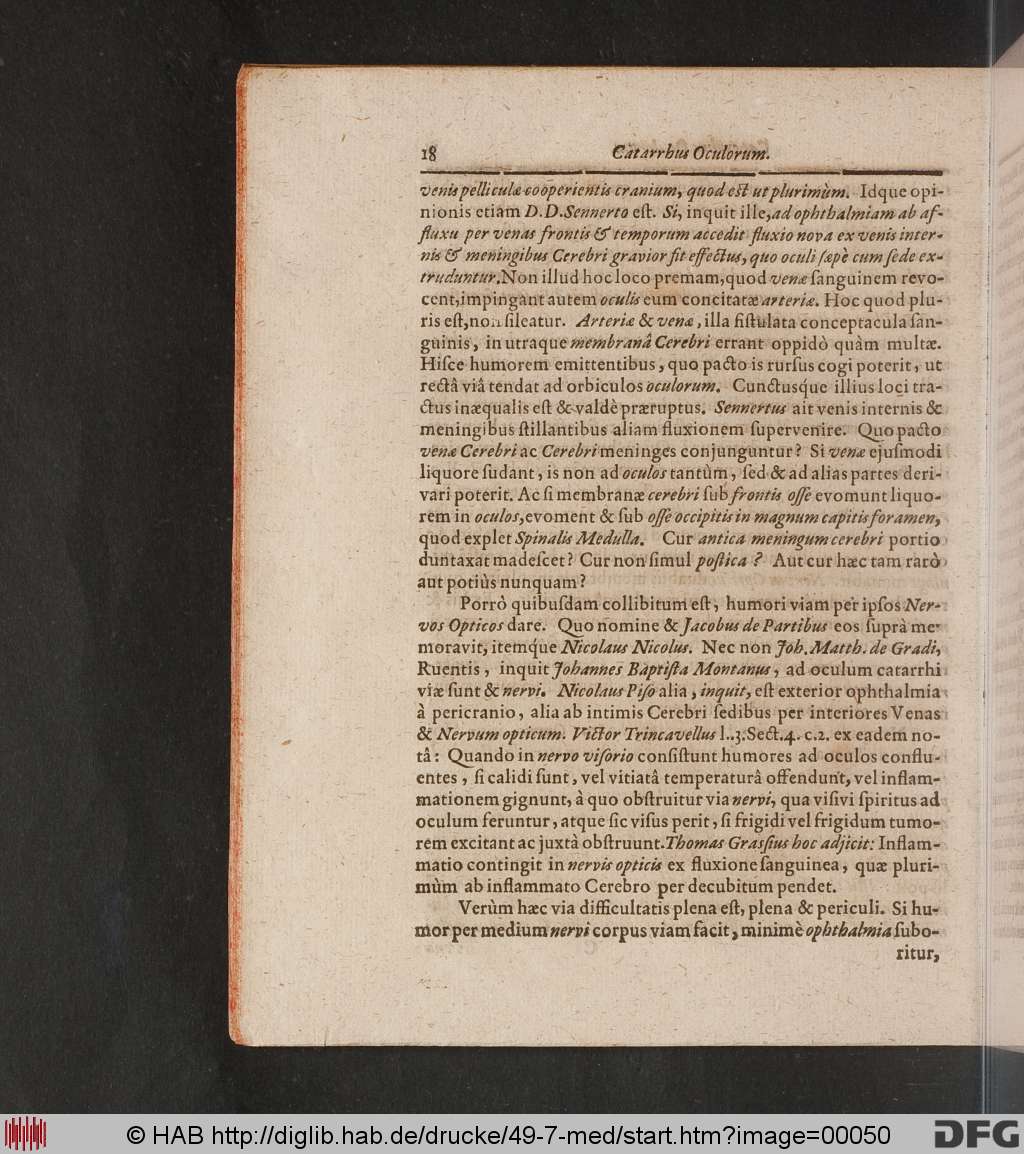 18 Catarrhus Oculorum.
venis pelliculæ cooperientis cranium, quod est ut plurimùm. Idque opi-
nionis etiam D.D. Sennerto est. Si, inquit ille, ad ophthalmiam ab af-
fluxu per venas frontis & temporum accedit fluxio nova ex venis inter-
nis & meningibus Cerebri gravior fit effectus, quo oculi sæpè cum sede ex-
truduntur. Non illud hoc loco premam, quod venæ sanguinem revo-
cent, impingant autem oculis eum concitatæ arteriæ. Hoc quod plu-
ris est, non sileatur. Arteriæ & venæ, illa fistulata conceptacula san-
guinis, in utraque membranâ Cerebri errant oppidò quàm multæ.
Hisce humorem emittentibus, quo pacto is rursus cogi poterit, ut
rectâ viâ tendat ad orbiculos oculorum. Cunctusq́ue illius loci tra-
ctus inæqualis est & valdè præruptus. Sennertus ait venis internis &
meningibus stillantibus aliam fluxionem supervenire. Quo pacto
venæ Cerebri ac Cerebri meninges conjunguntur? Si venæ ejusmodi
liquore sudant, is non ad oculos tantùm, sed & ad alias partes deri-
vari poterit. Ac si membranæ cerebri sub frontis osse evomunt liquo-
rem in oculos, evoment & sub osse occipitis in magnum capitis foramen,
quod explet Spinalis Medulla. Cur antica meningum cerebri portio
duntaxat madescet? Cur non simul postica? Aut cur hæc tam rarò
aut potiùs nunquam?
Porrò quibusdam collibitum est, humori viam per ipsos Ner-
vos Opticos dare. Quo nomine & Jacobus de Partibus eos suprà me-
moravit, itemq́ue Nicolaus Nicolus. Nec non Joh. Matth. de Gradi,
Ruentis, inquit Johannes Baptista Montanus, ad oculum catarrhi
viæ sunt & nervi. Nicolaus Piso alia, inquit, est exterior ophthalmia
à pericranio, alia ab intimis Cerebri sedibus per interiores Venas
& Nervum opticum. Victor Trincavellus l..3. Sect.4. c.2. ex eadem no-
tâ: Quando in nervo visorio consistunt humores ad oculos conflu-
entes, si calidi sunt, vel vitiatâ temperaturâ offendunt, vel inflam-
mationem gignunt, à quo obstruitur via nervi, qua visivi spiritus ad
oculum feruntur, atque sic visus perit, si frigidi vel frigidum tumo-
rem excitant ac juxtà obstruunt. Thomas Grassius hoc adjicit: Inflam-
matio contingit in nervis opticis ex fluxione sanguinea, quæ pluri-
mùm ab inflammato Cerebro per decubitum pendet.
Verùm hæc via difficultatis plena est, plena & periculi. Si hu-
mor per medium nervi corpus viam facit, minimè ophthalmia subo-
ritur,
© HAB http://diglib.hab.de/drucke/49-7-med/start.htm?image=00050
DFG